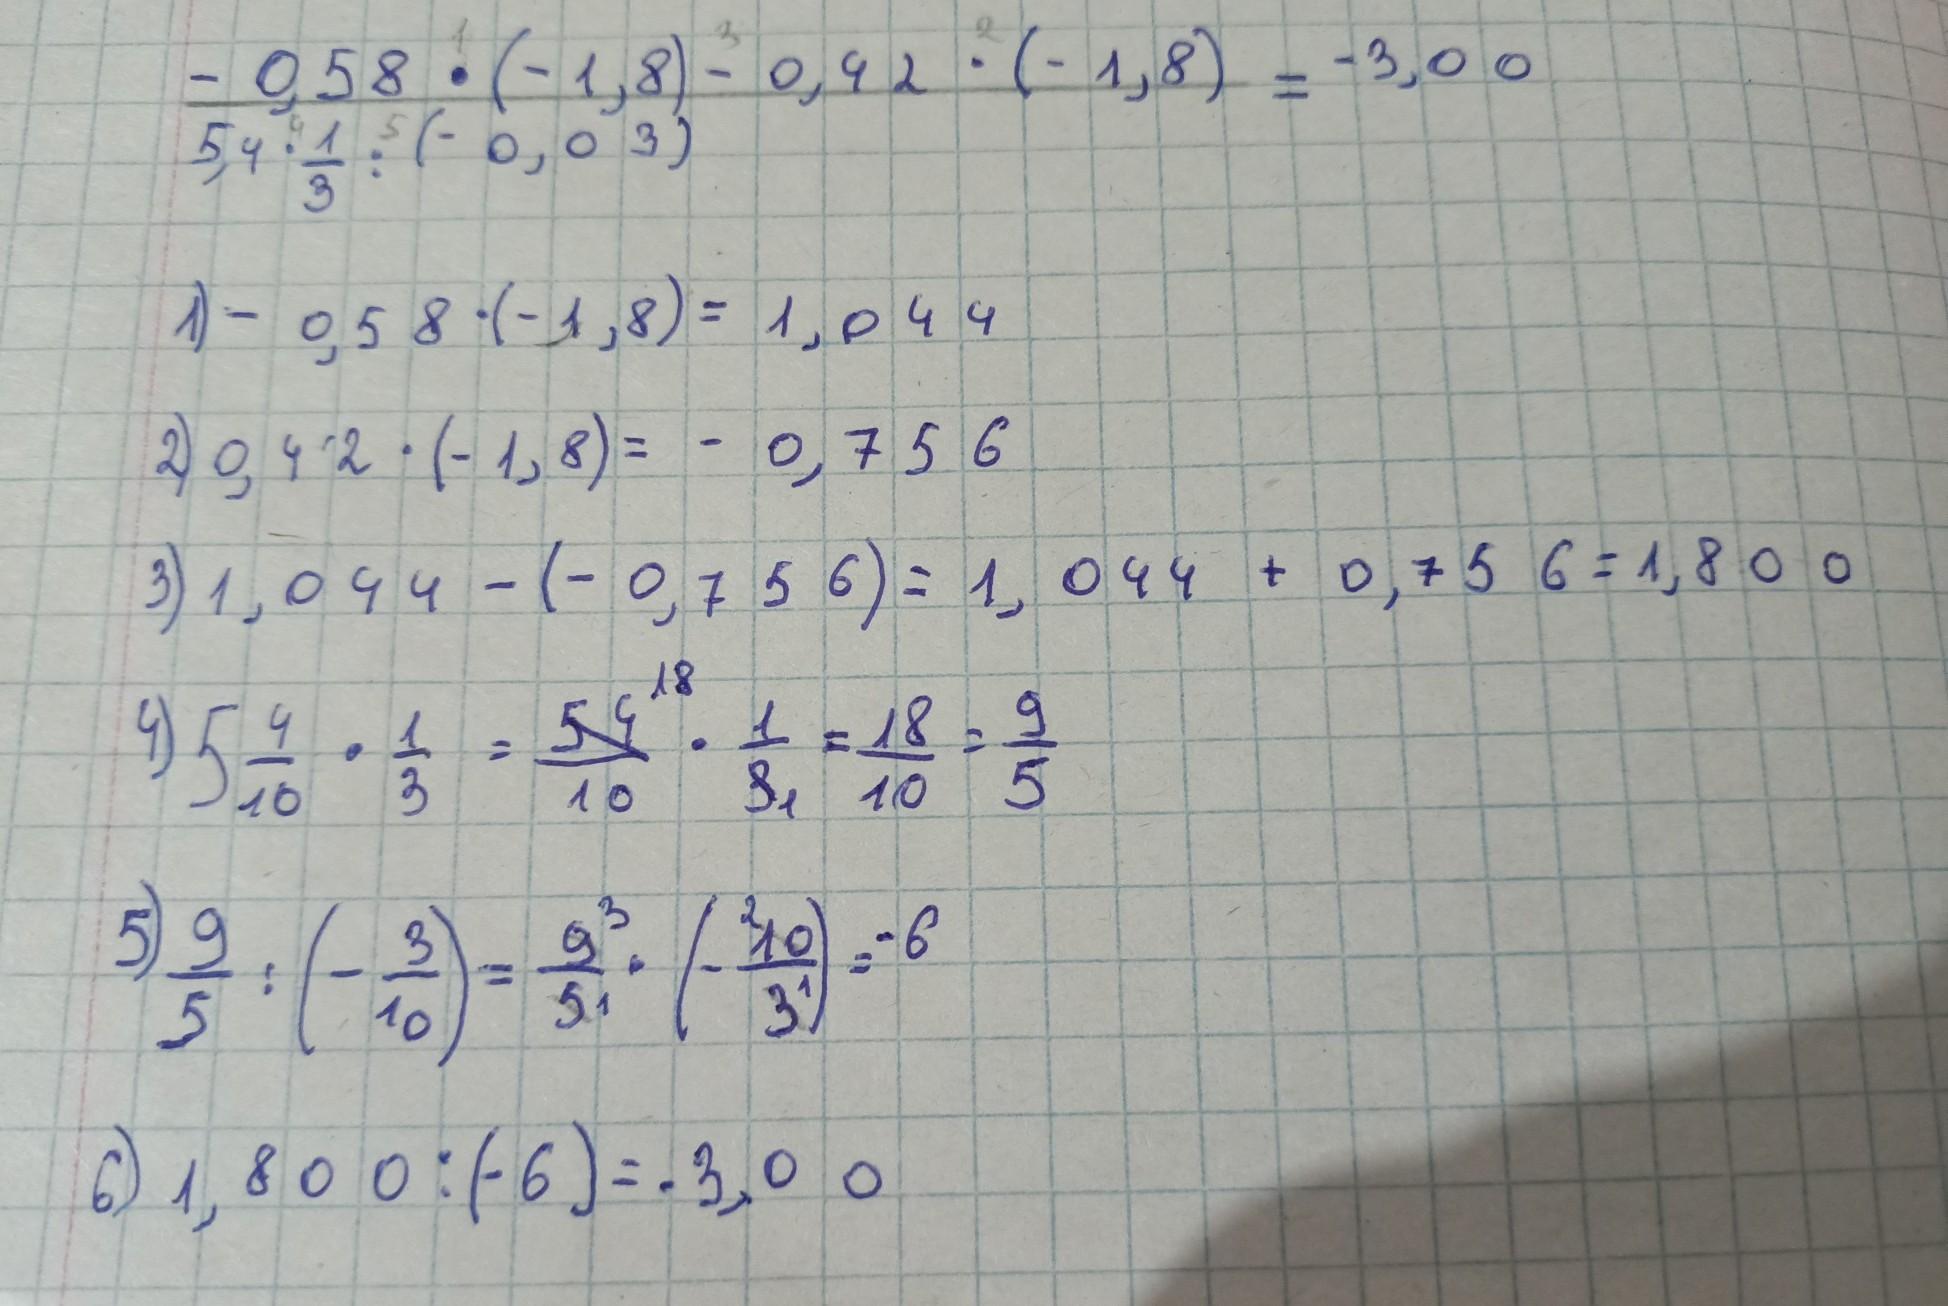 1 3 2
- 0,58 · (-1,8) - 0,42 · (-1,8) = -3,00
4 5
5,4 · 1/3 : (-0,03)
1) - 0,58 · (-1,8) = 1,044
2) 0,42 · (-1,8) = - 0,756
3) 1,044 - (- 0,756) = 1,044 + 0,756 = 1,800
4) 5 4/10 · 1/3 = 54 18/10 · 1/3 1 = 18/10 = 9/5
5) 9/5 : (- 3/10) = 9 3/5 1 · (- 2 10/3 1) = -6
6) 1,800 : (-6) = -3,00